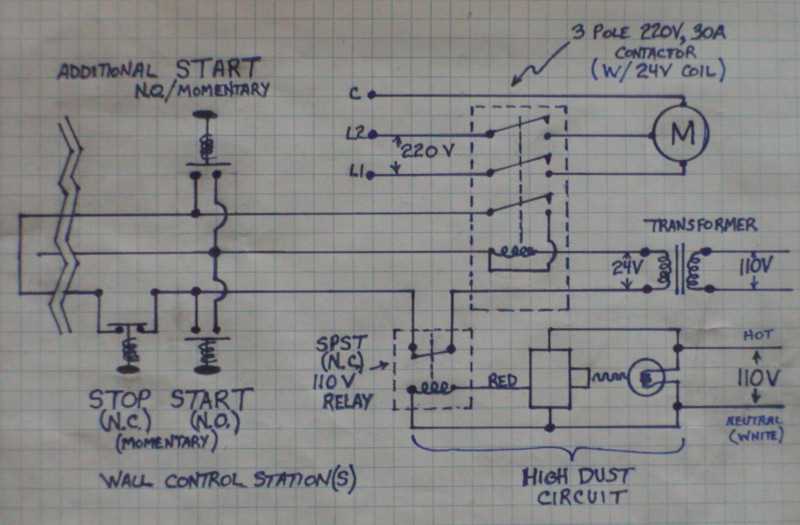 3 POLE 220V, 30A
CONTACTOR
(W/ 24V COIL)
ADDITIONAL START
N.O./MOMENTARY
C
L2
220V
L1
M
TRANSFORMER
24V
110V
SPST
(N.C)
110V
RELAY
RED
HOT
110V
NEUTRAL
(WHITE)
STOP
(N.C.)
(MOMENTARY)
START
(N.O.)
WALL CONTROL STATION(S)
HIGH DUST
CIRCUIT